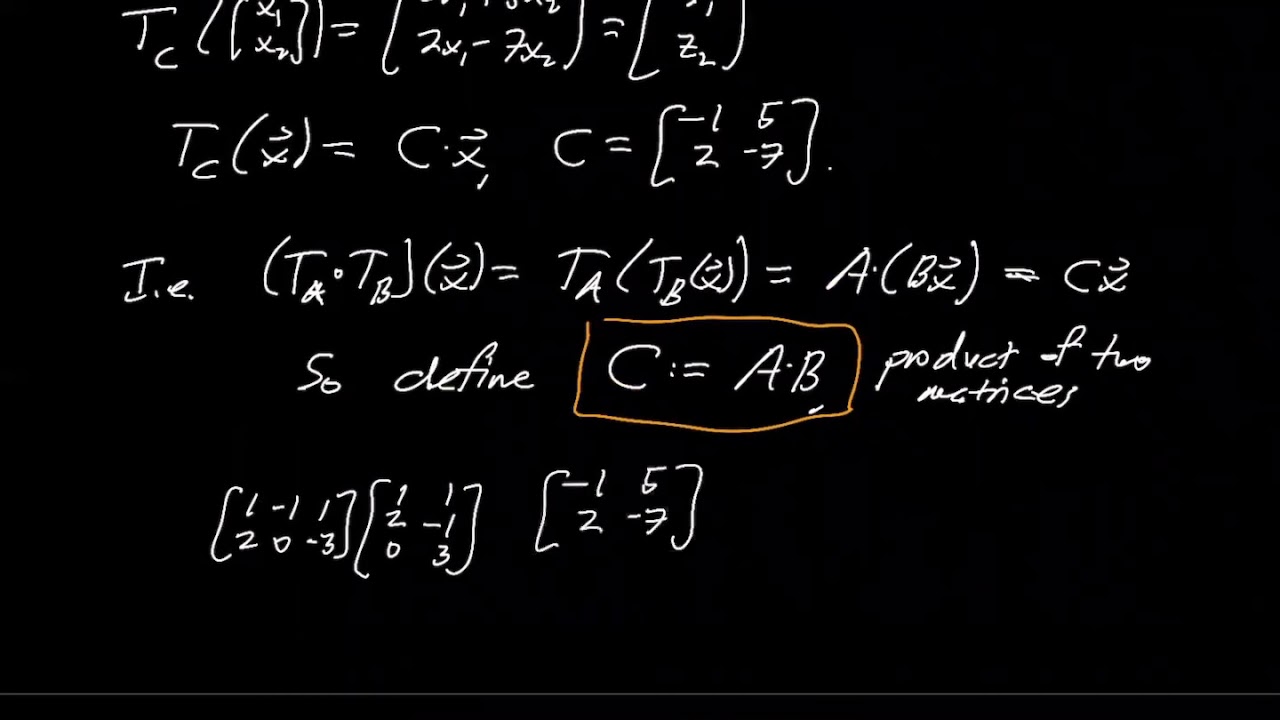 T_C([x_1 x_2]) = [2x_1 - 7x_2] = [z_2]
T_C(x⃗) = C·x⃗, C = [-1 5; 2 -7].
I.e. (T_A∘T_B)(x⃗) = T_A(T_B(x⃗)) = A·(Bx⃗) = Cx⃗
So define C := A·B product of two matrices
[1 -1 1; 2 0 -3] [1 1; 2 -1; 0 3] [-1 5; 2 -7]